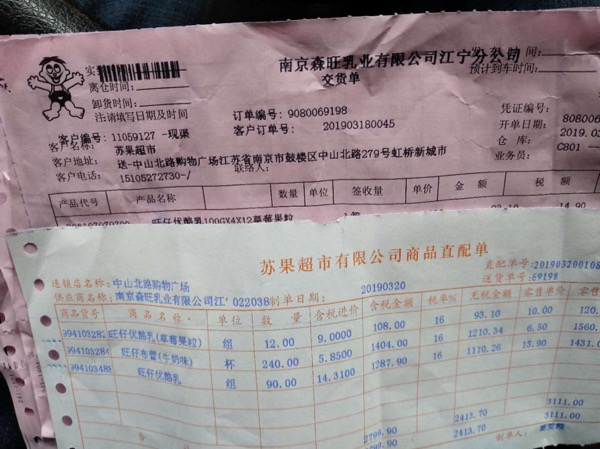 南京森旺乳业有限公司江宁分公司
交货单
离仓时间:
卸货时间:
注:请填写日期及时间
预计到车时间:
订单编号: 9080069198
客户订单号: 201903180045
凭证编号:
开单日期:
仓 库:
业务员:
C801
客户编号: 11059127 -现渠
客户名称: 苏果超市
客户地址: 送-中山北路购物广场江苏省南京市鼓楼区中山北路279号虹桥新城市
客户电话: 15105272730-/
联系人:
产品代号 产品名称 数量 单位 签收量 单价 金 额 税 额
旺仔优酪乳100GX4X12草莓果粒 14.90
苏果超市有限公司商品直配单
连锁店名称: 中山北路购物广场
供应商名称: 南京森旺乳业有限公司江' 022038 制单日期: 20190320
直配单号:
送货单号: 69198
商品壹号 商品名称 单位 数 量 含税进价 含税金额 税率% 无税金额 零售单价
旺仔优酪乳(草莓果粒) 组 12.00 9.0000 108.00 16 93.10 10.00 120.
旺仔布蕾(牛奶味) 杯 240.00 5.8500 1404.00 16 1210.34 6.50 1560.
旺仔优酪乳 组 90.00 14.3100 1287.90 16 1110.26 15.90 1431.
3111.00
2413.70
2799.90 2413.70 3111.00
制单人: